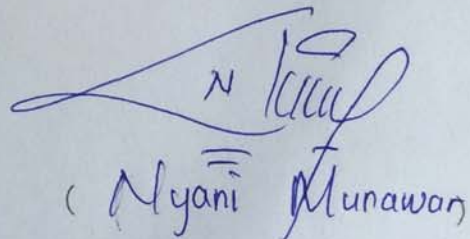 N
( Nyani Munawar)